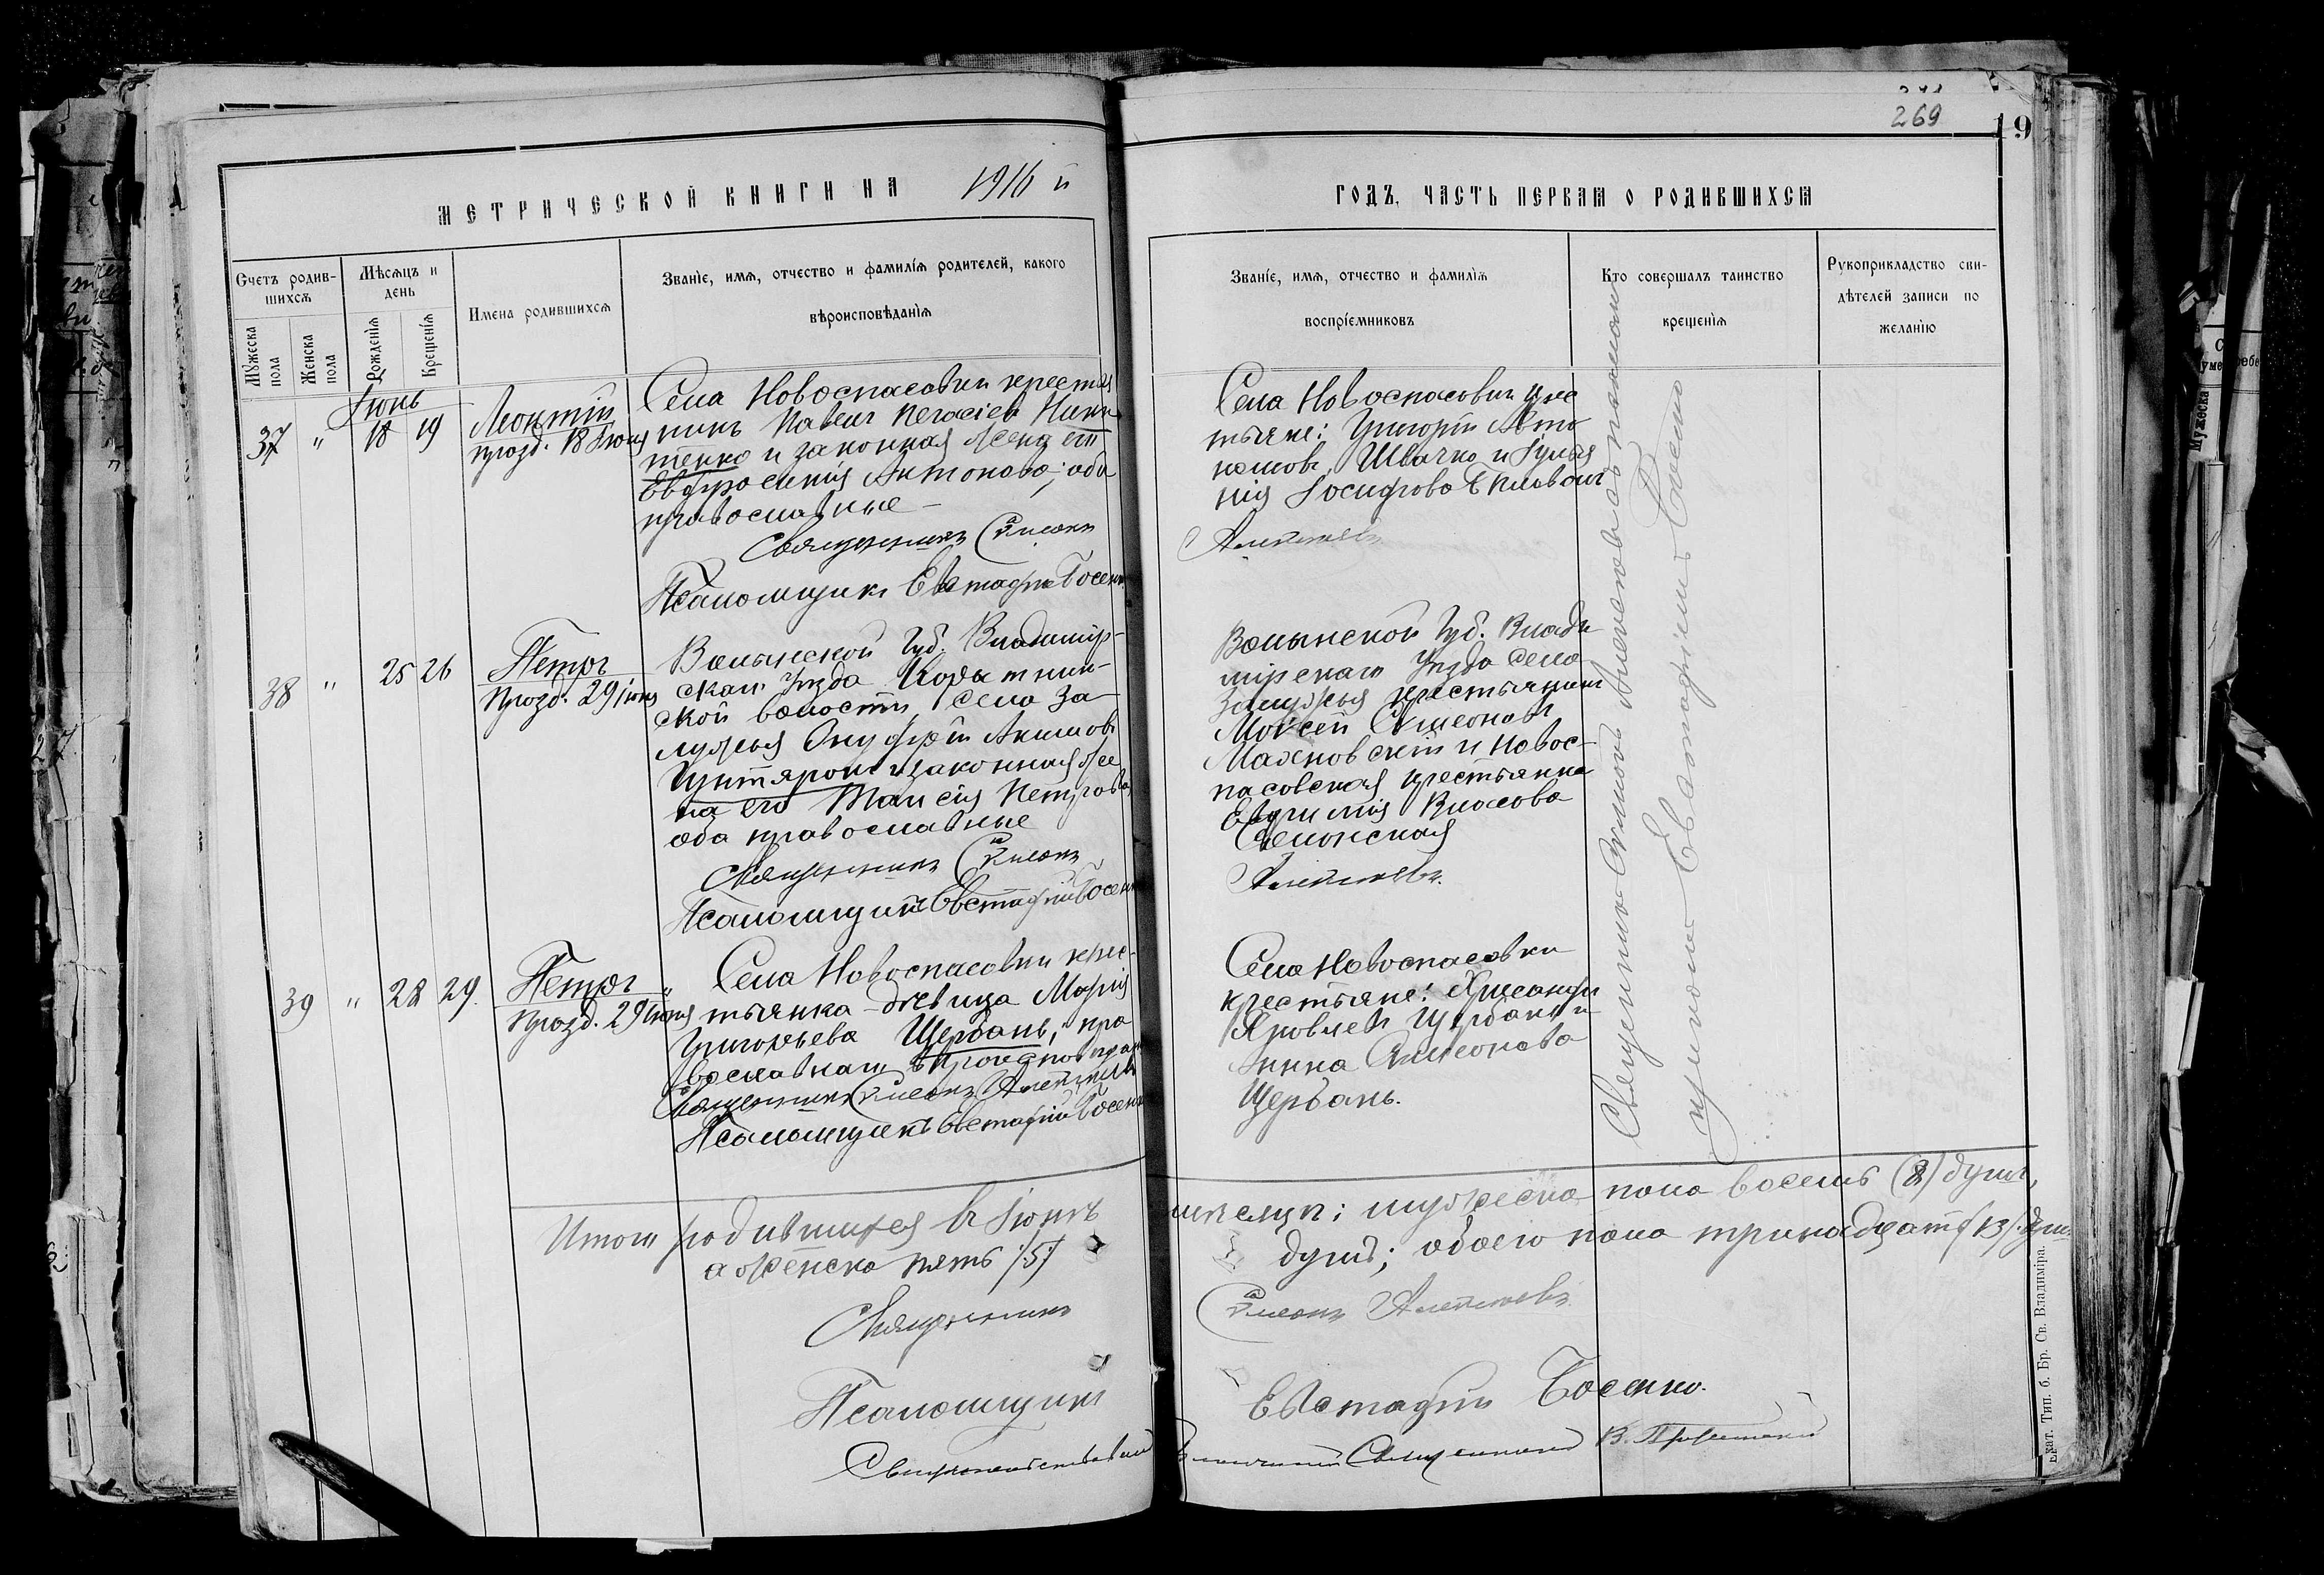 269
19
МЕТРИЧЕСКОЙ КНИГИ НА 1916 й
ГОДЪ, ЧАСТЬ ПЕРВАЯ О РОДИВШИХСЯ
Счетъ родив-
шихся
Мужеска
пола
Женска
пола
Мѣсяцъ и
день
Рожденія
Крещенія
Имена родившихся
Званіе, имя, отчество и фамилія родителей, какого
вѣроисповѣданія
Званіе, имя, отчество и фамилія
воспріемниковъ
Кто совершалъ таинство
крещенія
Рукоприкладство сви-
дѣтелей записи по
желанію
Іюнь
37 " 18 19
Леонтій
празд. 18 Іюня
Села Новоспасовки крестья
нинъ Павелъ Ники
тенко и законная жена его
Евфросинія Антонова; оба
православные
Священникъ Симеонъ
Псаломщикъ Евстафій Босенко
Села Новоспасовки крес
тьяне: Григорій
Швачко и
Іосифова
Алексѣевъ
38 " 25 26
Петръ
Празд. 29 іюня
Волынской Губ. Владимір-
скаго Уѣзда
ской волости, села За
лужья Онуфрій Акимовъ
и законная же
на его Таисія Петрова
оба православные
Священникъ Симеонъ
Псаломщикъ Евстафій Босенко
Волынской Губ. Влади
мірскаго Уѣзда села
Залужья крестьянинъ
Моѵсей Симеоновъ
Махновскій и Новос-
пасовская крестьянка
Евфимія Власова
Алексѣевъ.
39 " 28 29.
Петръ
Празд. 29 Іюня
Села Новоспасовки крес-
тьянка-дѣвица Марія
Григорьева Щербань, пра
вославнаго
Священникъ Симеонъ Алексѣевъ
Псаломщикъ Евстафій Босенко
Села Новоспасовки
крестьяне: Александръ
Яковлевъ Щербань и
Анна Симеонова
Щербань.
Священникъ Симеонъ Алексѣевъ съ псалом
щикомъ Евстафіемъ Босенко
Итого родившихся въ Іюнѣ
мѣсяцѣ: мужеска пола восемь (8) душъ,
а женска пять /5/
душъ; обоего пола тринадцать /13/ душъ
Священникъ
Симеонъ Алексѣевъ
Псаломщикъ
Евстафій Босенко.
Свидѣтельствовалъ Благочинный Священникъ В.
Екат. Тип. б. Бр. Св. Владиміра.